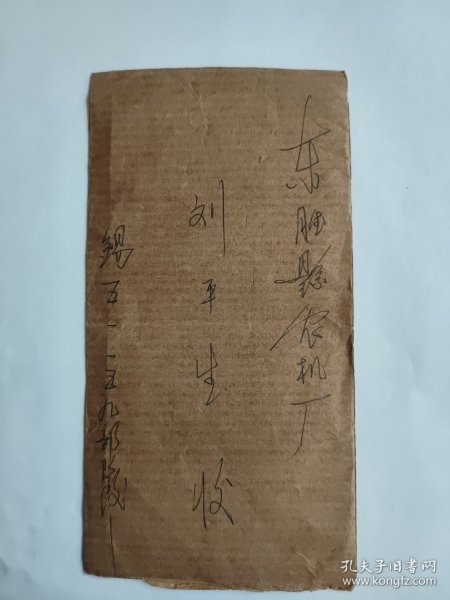 东胜县农机厂
刘平生收
锡五一一五九部
孔夫子旧书网
www.kongfz.com